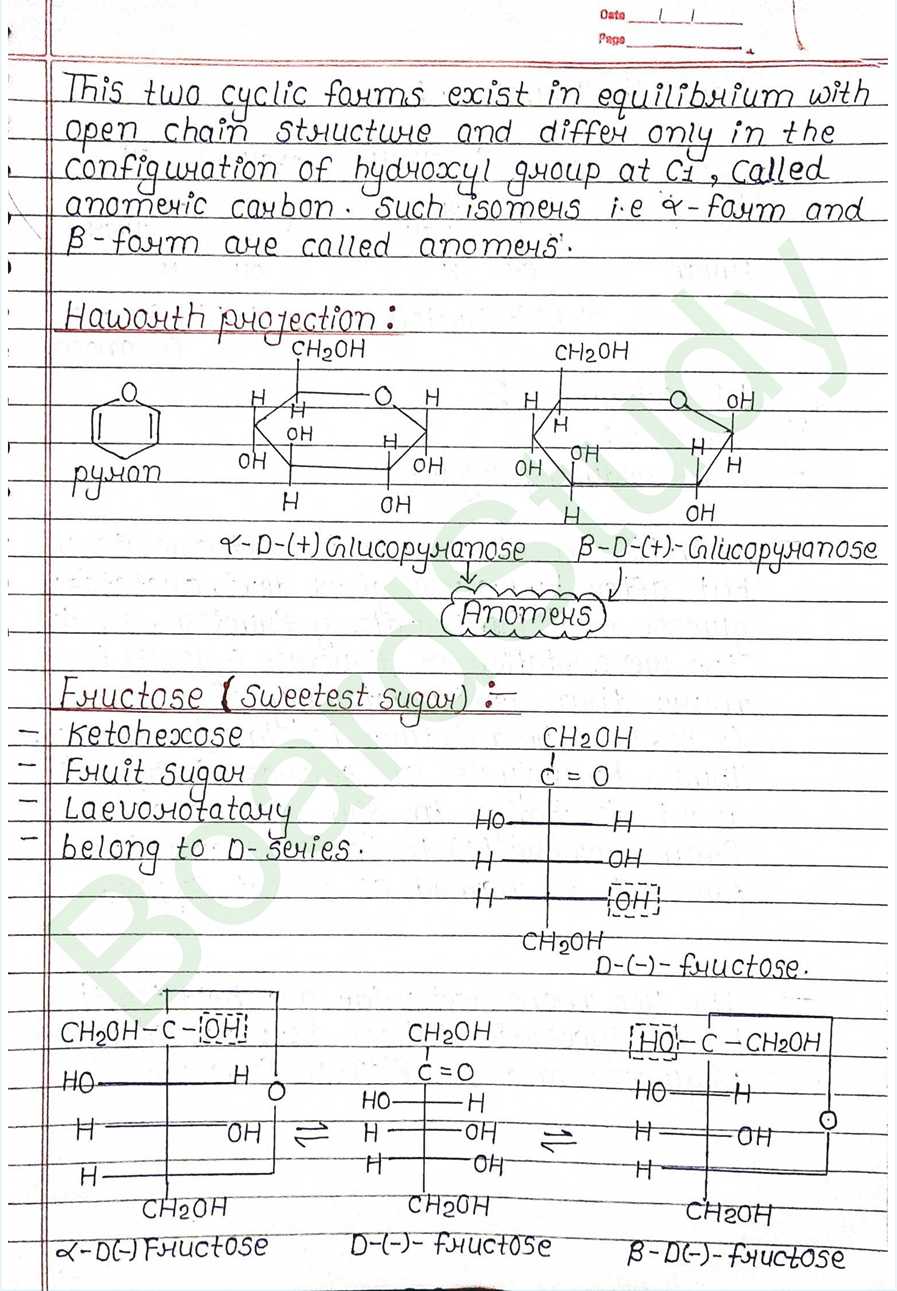 Date / /
Page
This two cyclic forms exist in equilibrium with
open chain structure and differ only in the
configuration of hydroxyl group at C1, Called
anomeric carbon. Such isomers i.e α-form and
β-form are called anomers.
Haworth projection :
CH2OH CH2OH
O H O H H O OH
H H
OH H OH H
OH OH OH H
pyran
H OH H OH
α-D-(+) Glucopyranose β-D-(+)-Glucopyranose
Anomers
Fructose (sweetest sugar) :-
- Ketohexose
- Fruit sugar
- Laevorotatary
- belong to D-series.
CH2OH
C = O
HO H
H OH
H OH
CH2OH
D-(-)- fructose.
CH2OH-C-OH CH2OH HO-C-CH2OH
C=O
HO H O HO H HO H
H OH ⇌ H OH ⇌ H OH O
H H OH H
CH2OH CH2OH CH2OH
α-D(-) Fructose D-(-)- fructose β-D(-)-fructose
BoardStudy